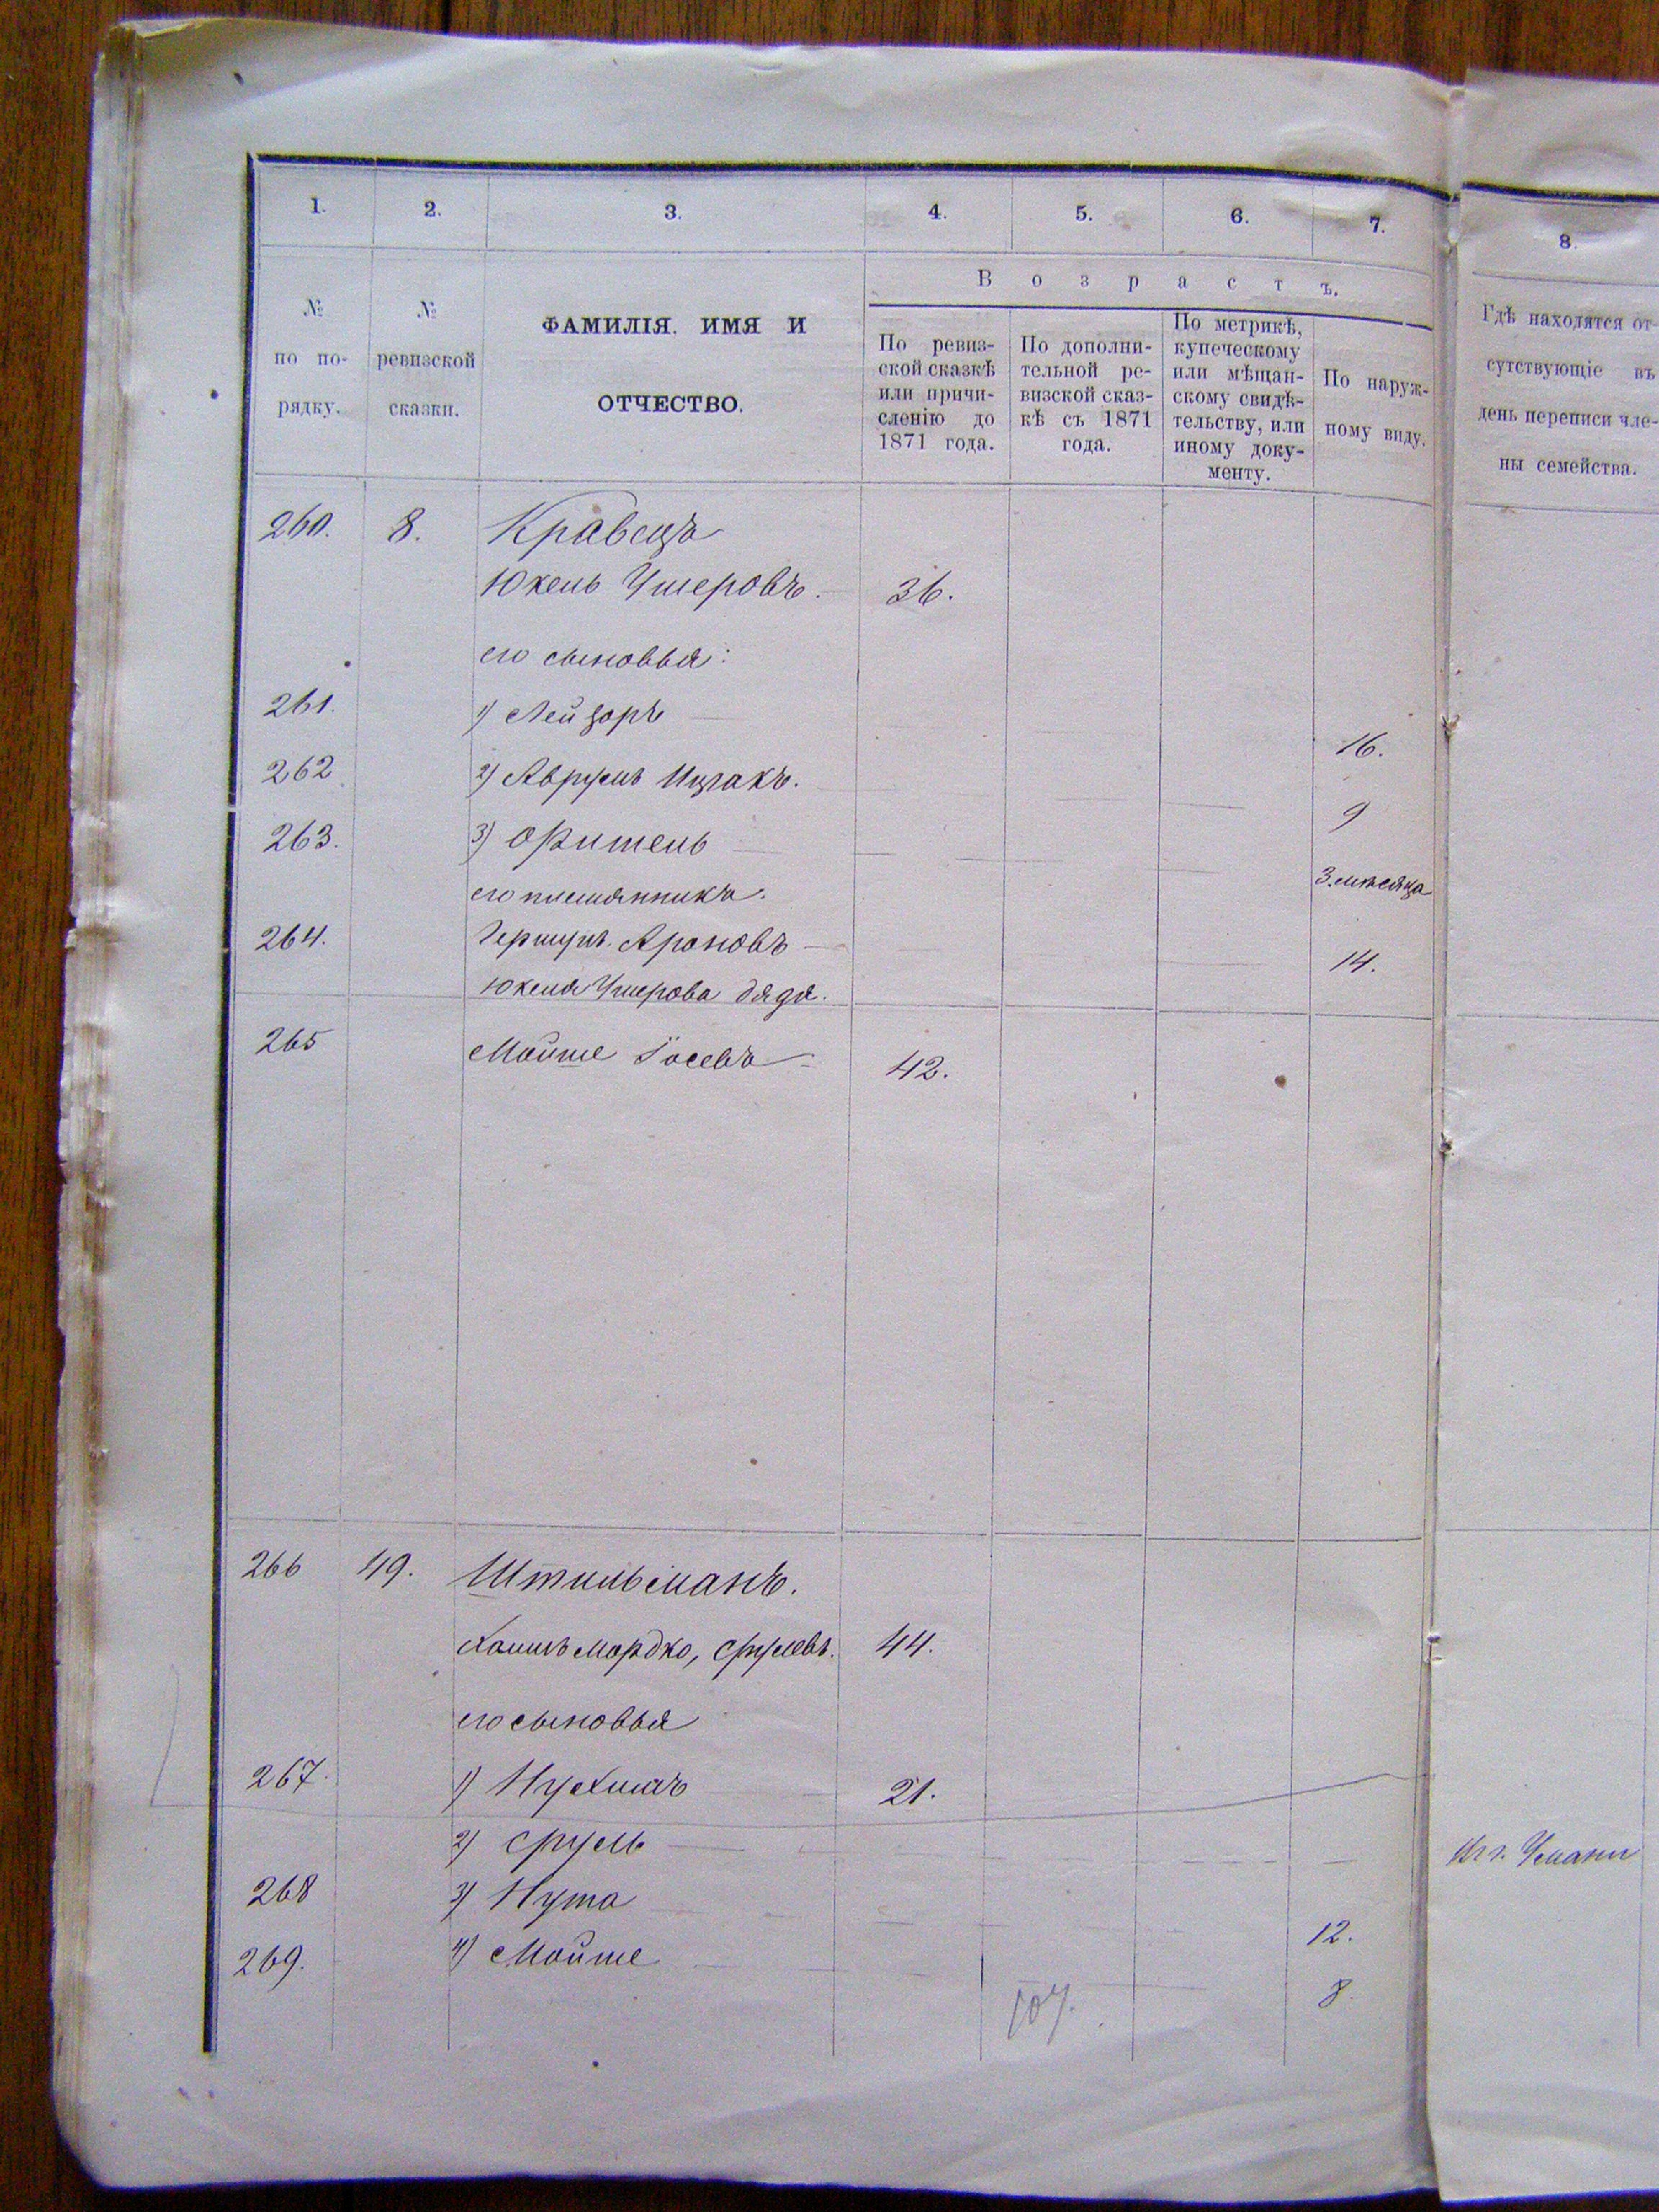 1. 2. 3. 4. 5. 6. 7. 8.
№ по по-рядку.
№ ревизской сказки.
ФАМИЛІЯ. ИМЯ И
ОТЧЕСТВО.
Возрастъ.
По ревиз-
ской сказкѣ
или причи-
сленію до
1871 года.
По дополни-
тельной ре-
визской сказ-
кѣ съ 1871
года.
По метрикѣ,
купеческому
или мѣщан-
скому свидѣ-
тельству, или
иному доку-
менту.
По наруж-
ному виду.
Гдѣ находятся от-
сутствующіе въ
день переписи чле-
ны семейства.
260. 8. Кравецъ
Юкель Ушеровъ. 36.
его сыновья:
261. 1) Лейзоръ 16.
262 2) Аврумъ Ицхакъ. 9
263. 3) 3 мѣсяца
его племянникъ.
264. Гершунъ Ароновъ 14.
Юкеля Ушерова дядя.
265 Мойше Іосевъ 42.
266 49. Штильманъ.
Хаимъ Мордко, Срулевъ. 44.
его сыновья
267. 1) Нухимъ 21.
2) Сруль Въ г. Умани
268 3) Нута 12.
269. 4) Мойше 8.